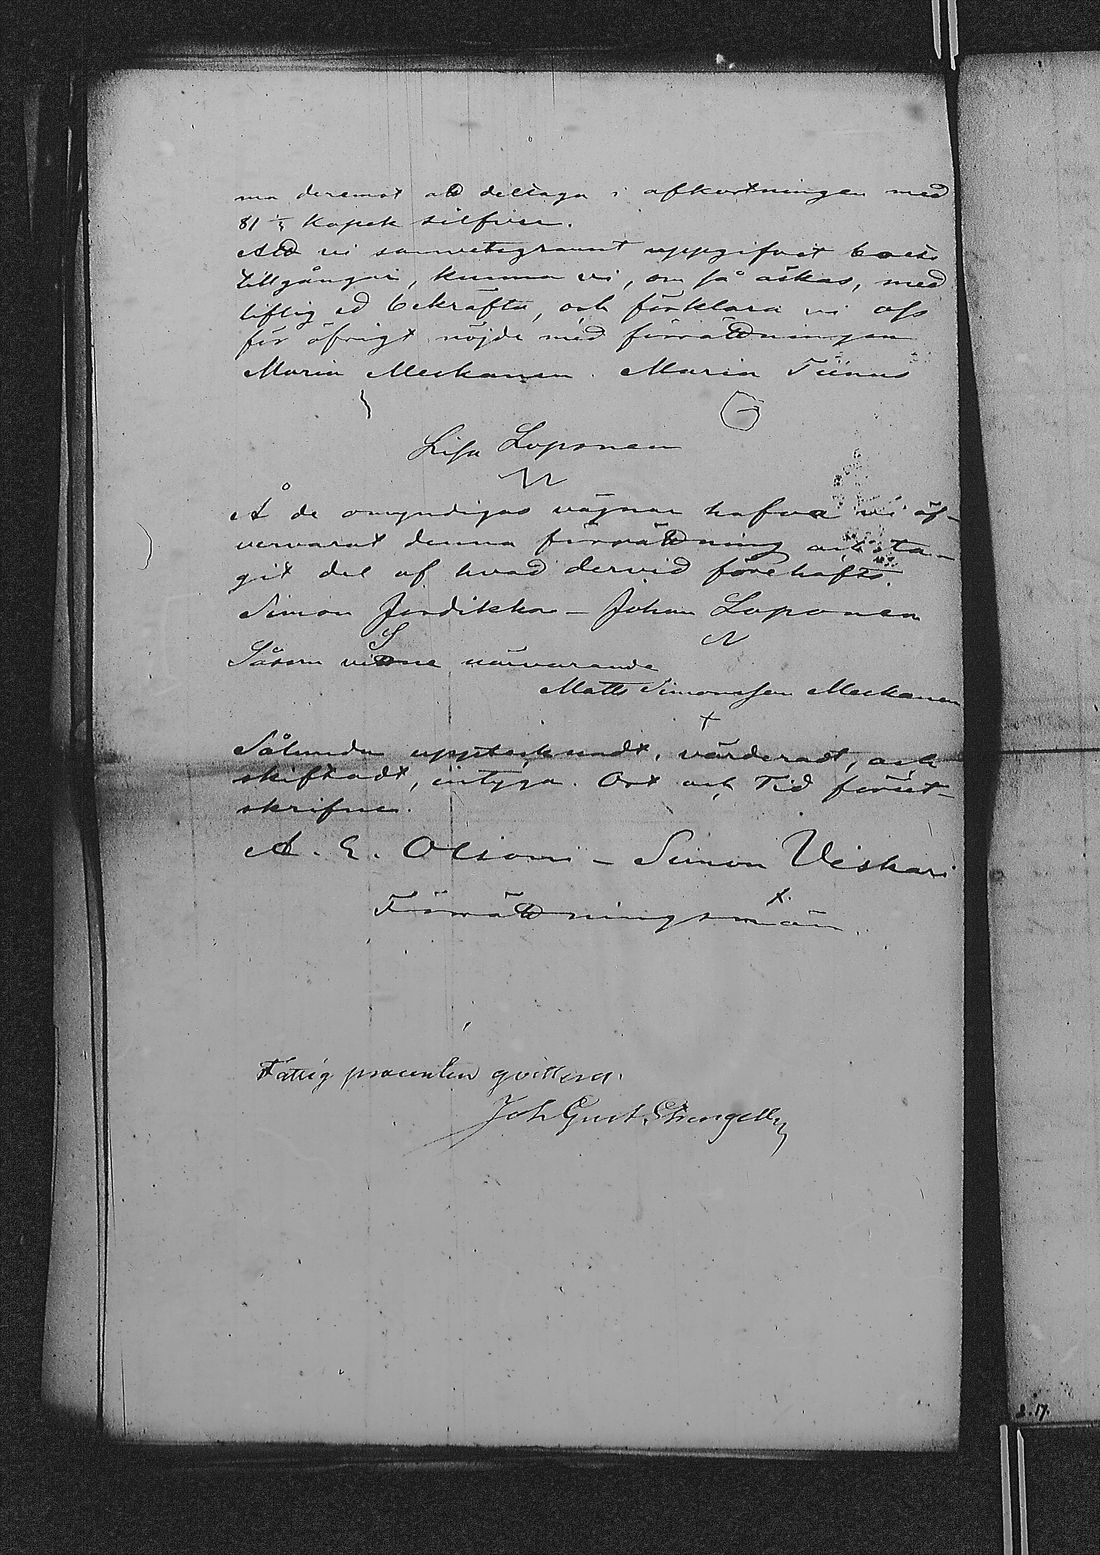 ma deremot att deltaga i afkortningen med
81 1/3 Kopek silfver.
Att vi samvetsgrannt uppgifvit boets
tillgångar, kunna vi, om så äskas, med
liflig ed bekräfta, och förklara vi oss
för öfrigt nöjde med förrättningen
Maria Meskanen. Maria Tiinus
Lisa Loponen
Å de omyndigas vägnar hafva vi öf-
vervarat denna förrättning och ta-
git del af hvad dervid förehafts.
Simon Jordikka – Johan Loponen
Såsom vittne närvarande
Matts Simonsson Meskanen
Sålunda upptecknadt, värderadt, och
skiftadt, intyga. Ort och Tid föret-
skrifne.
A. E. Olsoni – Simon Veskari
Förrättningsmän.
Fattig procenten qvitterat.
Joh Gust
2.17.